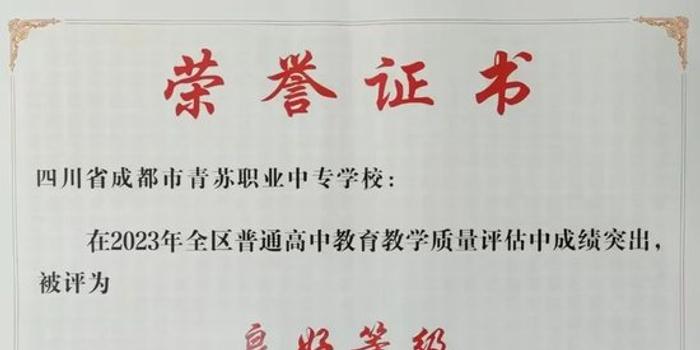 荣誉证书
四川省成都市青苏职业中专学校：
在2023年全区普通高中教育教学质量评估中成绩突出，
被评为
良好等级